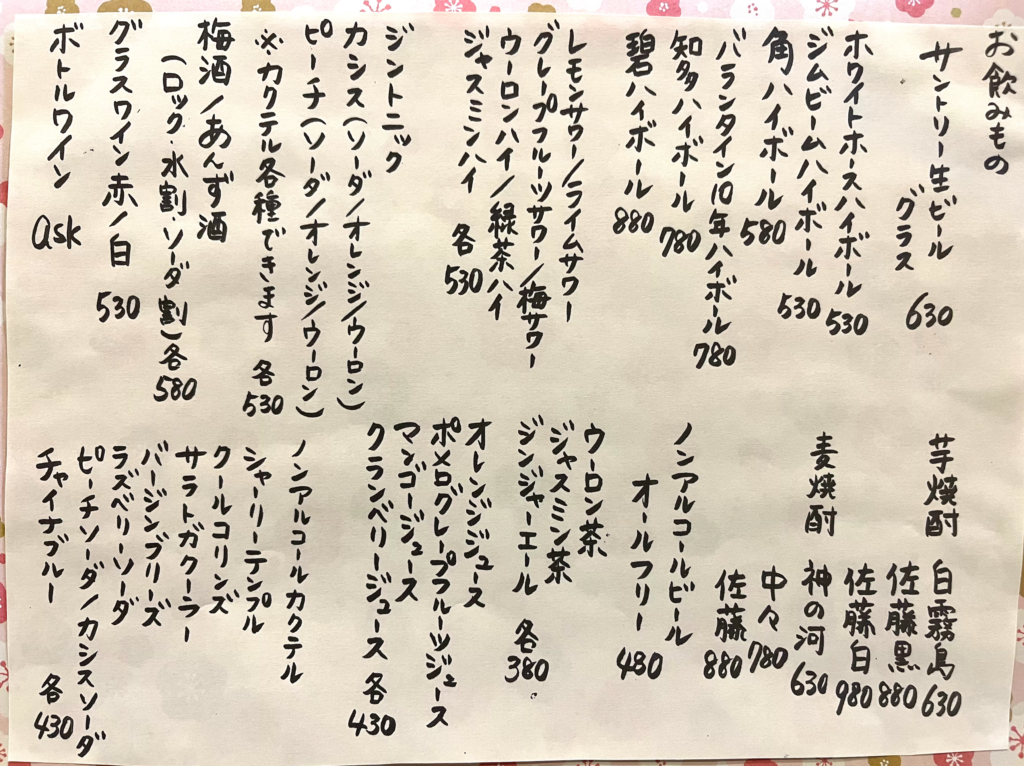 お飲みもの
サントリー生ビール
グラス 630
ホワイトホースハイボール 530
ジムビームハイボール 530
角ハイボール 580
バランタイン10年ハイボール 780
知多ハイボール 780
碧ハイボール 880
レモンサワー/ライムサワー
グレープフルーツサワー/梅サワー
ウーロンハイ/緑茶ハイ
ジャスミンハイ 各530
ジントニック
カシス(ソーダ/オレンジ/ウーロン)
ピーチ(ソーダ/オレンジ/ウーロン)
※カクテル各種できます 各530
梅酒/あんず酒
(ロック・水割・ソーダ割)各580
グラスワイン赤/白 530
ボトルワイン ask
芋焼酎 白霧島 630
佐藤黒 880
佐藤白 980
麦焼酎 神の河 630
中々 780
佐藤 880
ノンアルコールビール
オールフリー 480
ウーロン茶
ジャスミン茶
ジンジャーエール 各380
オレンジジュース
ポメログレープフルーツジュース
マンゴージュース
クランベリージュース 各430
ノンアルコールカクテル
シャーリーテンプル
クールコリンズ
サラトガクーラー
バージンブリーズ
ラズベリーソーダ
ピーチソーダ/カシスソーダ
チャイナブルー 各430